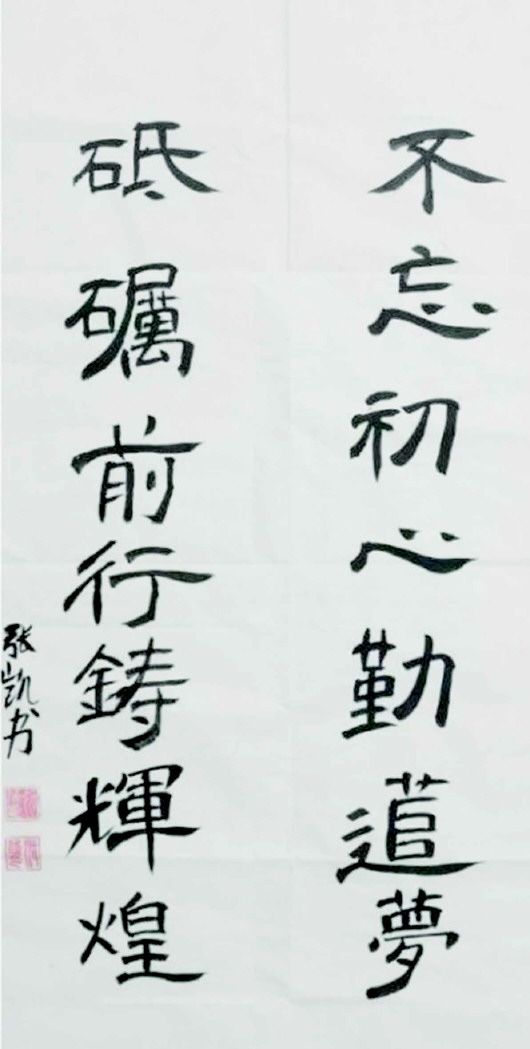 不忘初心勤追夢
砥礪前行鋳輝煌
张凯书